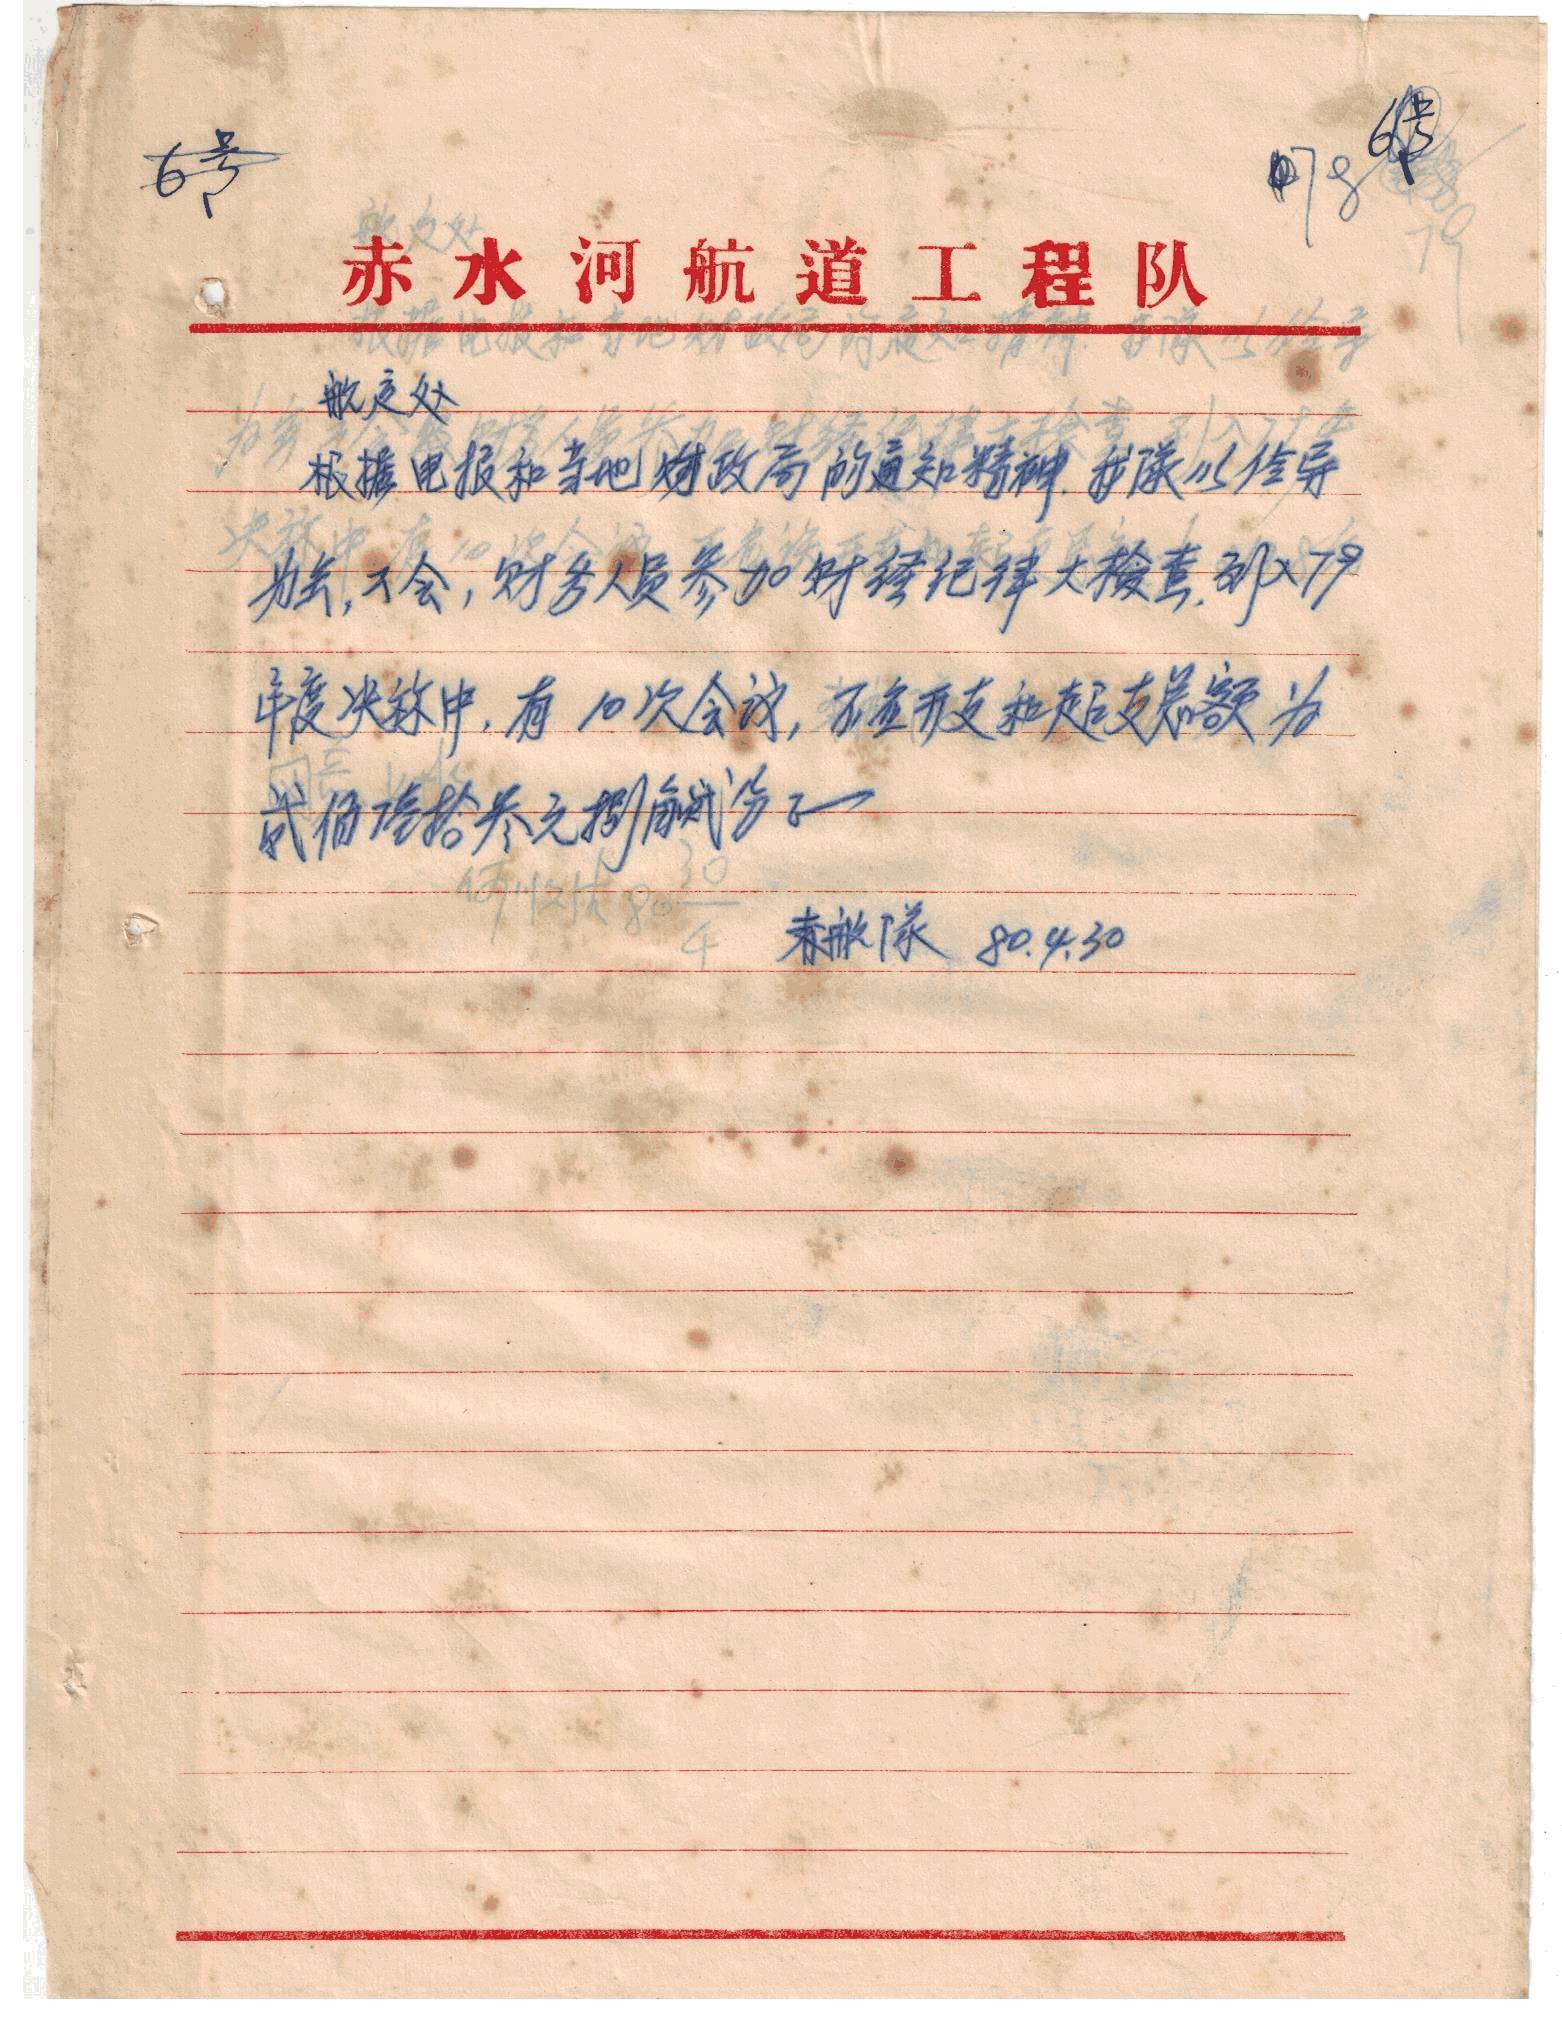 6号
6号
178
79
赤水河航道工程队
航定处
根据电报和当地财政局的通知精神.我隊以
为主,工会,财务人员参加财经纪律大检查.列入79
年度决称中.有10次会议,不宜开支和起支总额为
贰佰陆拾叁元捌角贰分
赤航隊 80.4.30